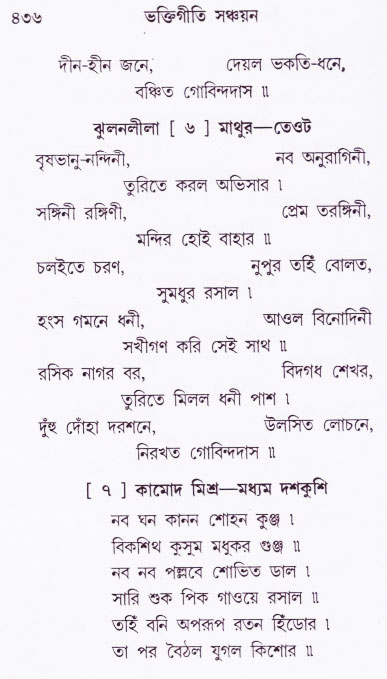 ৪৩৬ ভক্তিগীতি সঞ্চয়ন
দীন-হীন জনে, দেয়ল ভকতি-ধনে,
বঞ্চিত গোবিন্দদাস ॥
ঝুলনলীলা [ ৬ ] মাথুর—তেওট
বৃষভানু-নন্দিনী, নব অনুরাগিনী,
তুরিতে করল অভিসার ।
সঙ্গিনী রঙ্গিণী, প্রেম তরঙ্গিনী,
মন্দির হোই বাহার ॥
চলইতে চরণ, নুপুর তহিঁ বোলত,
সুমধুর রসাল ।
হংস গমনে ধনী, আওল বিনোদিনী
সখীগণ করি সেই সাথ ॥
রসিক নাগর বর, বিদগধ শেখর,
তুরিতে মিলল ধনী পাশ ।
দুঁহু দোঁহা দরশনে, উলসিত লোচনে,
নিরখত গোবিন্দদাস ॥
[ ৭ ] কামোদ মিশ্র—মধ্যম দশকুশি
নব ঘন কানন শোহন কুঞ্জ ।
বিকশিথ কুসুম মধুকর গুঞ্জ ॥
নব নব পল্লবে শোভিত ডাল ।
সারি শুক পিক গাওয়ে রসাল ॥
তহিঁ বনি অপরূপ রতন হিঁডোর ।
তা পর বৈঠল যুগল কিশোর ॥